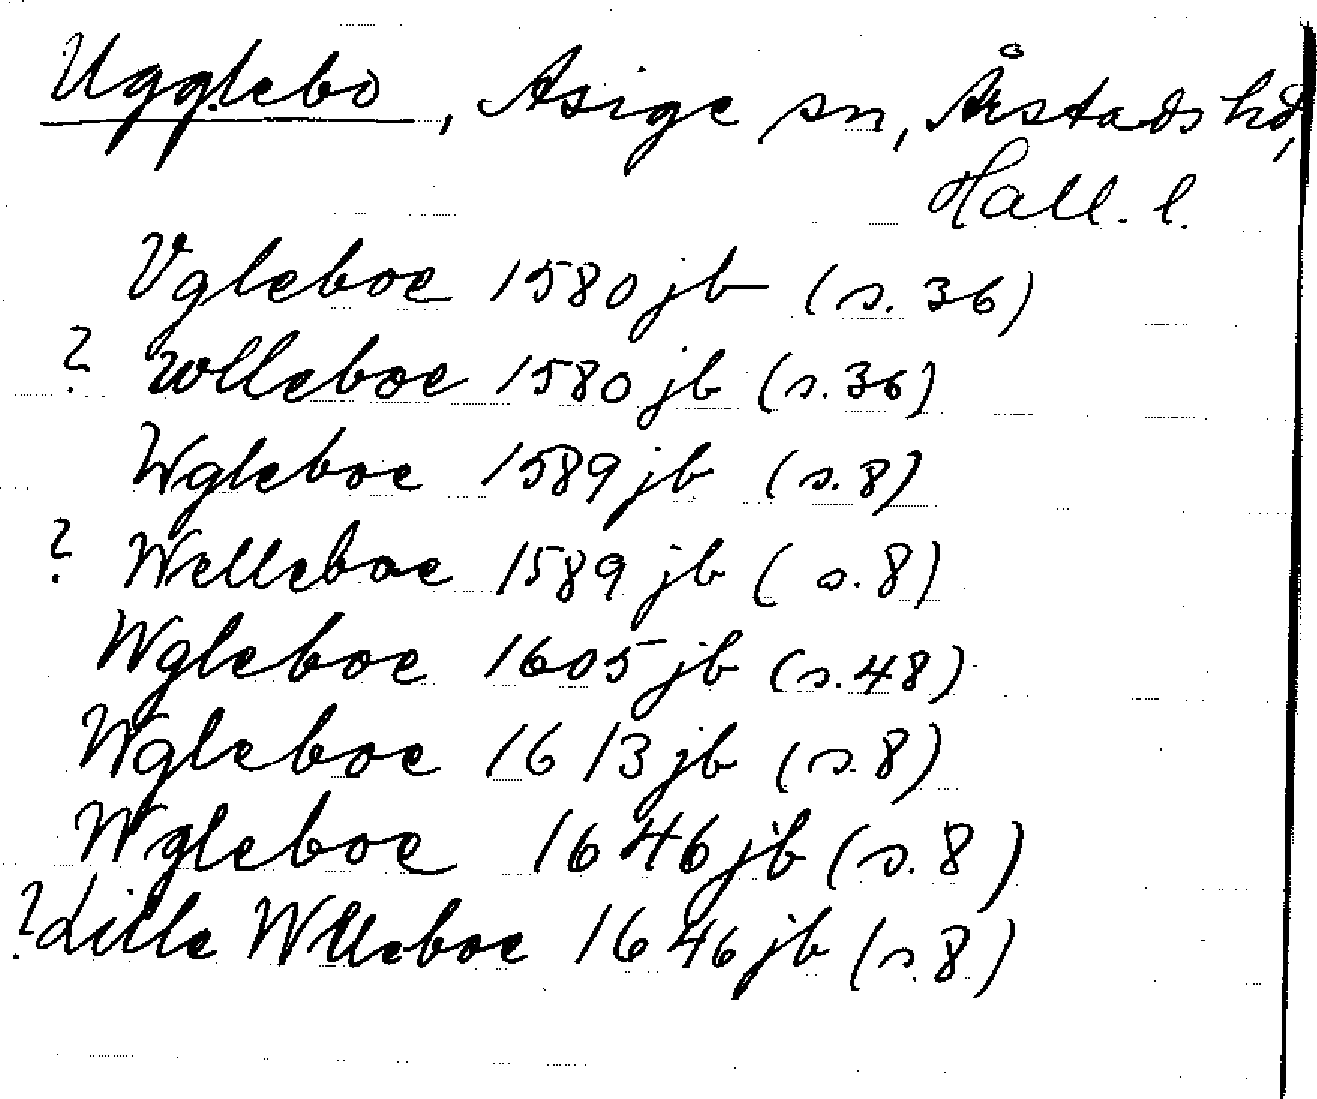 Ugglebo, Asige sn, Årstads hd,
Hall. l.
Vgleboe 1580 jb (s. 36)
? Wlleboe 1580 jb (s. 36)
Wgleboe 1589 jb (s. 8)
? Welleboe 1589 jb (s. 8)
Wgleboe 1605 jb (s. 48)
Wgleboe 1613 jb (s. 8)
Wgleboe 1646 jb (s. 8)
? Lille Wlleboe 1646 jb (s. 8)